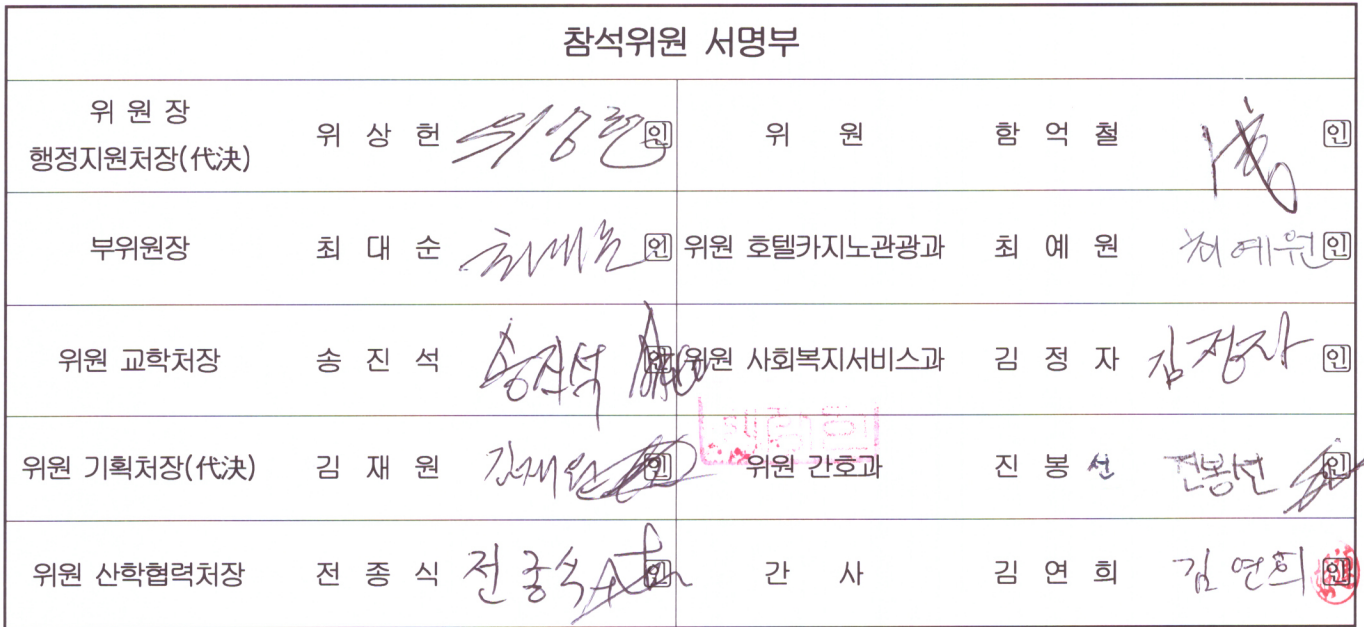 참석위원 서명부
위 원 장
행정지원처장(代決) 위 상 헌 위상헌 인 위 원 함 억 철 인
부위원장 최 대 순 최대순 인 위원 호텔카지노관광과 최 예 원 최예원 인
위원 교학처장 송 진 석 송진석 인 위원 사회복지서비스과 김 정 자 김정자 인
위원 기획처장(代決) 김 재 원 김재원 인 위원 간호과 진 봉 선 진봉선 인
위원 산학협력처장 전 종 식 전종식 인 간 사 김 연 희 김연희 인